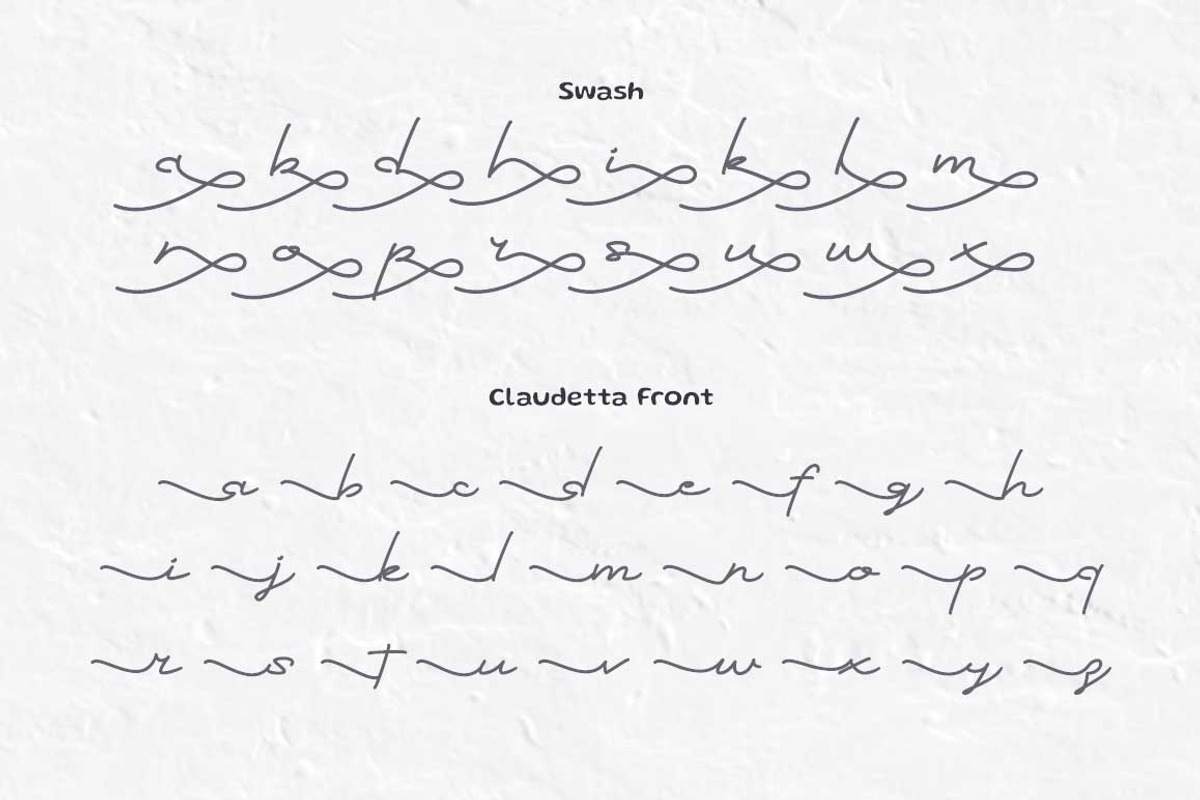 Swash
a b d h i k l m
n o p r s u w x
Claudetta Front
a b c d e f g h
i j k l m n o p q
r s t u v w x y z